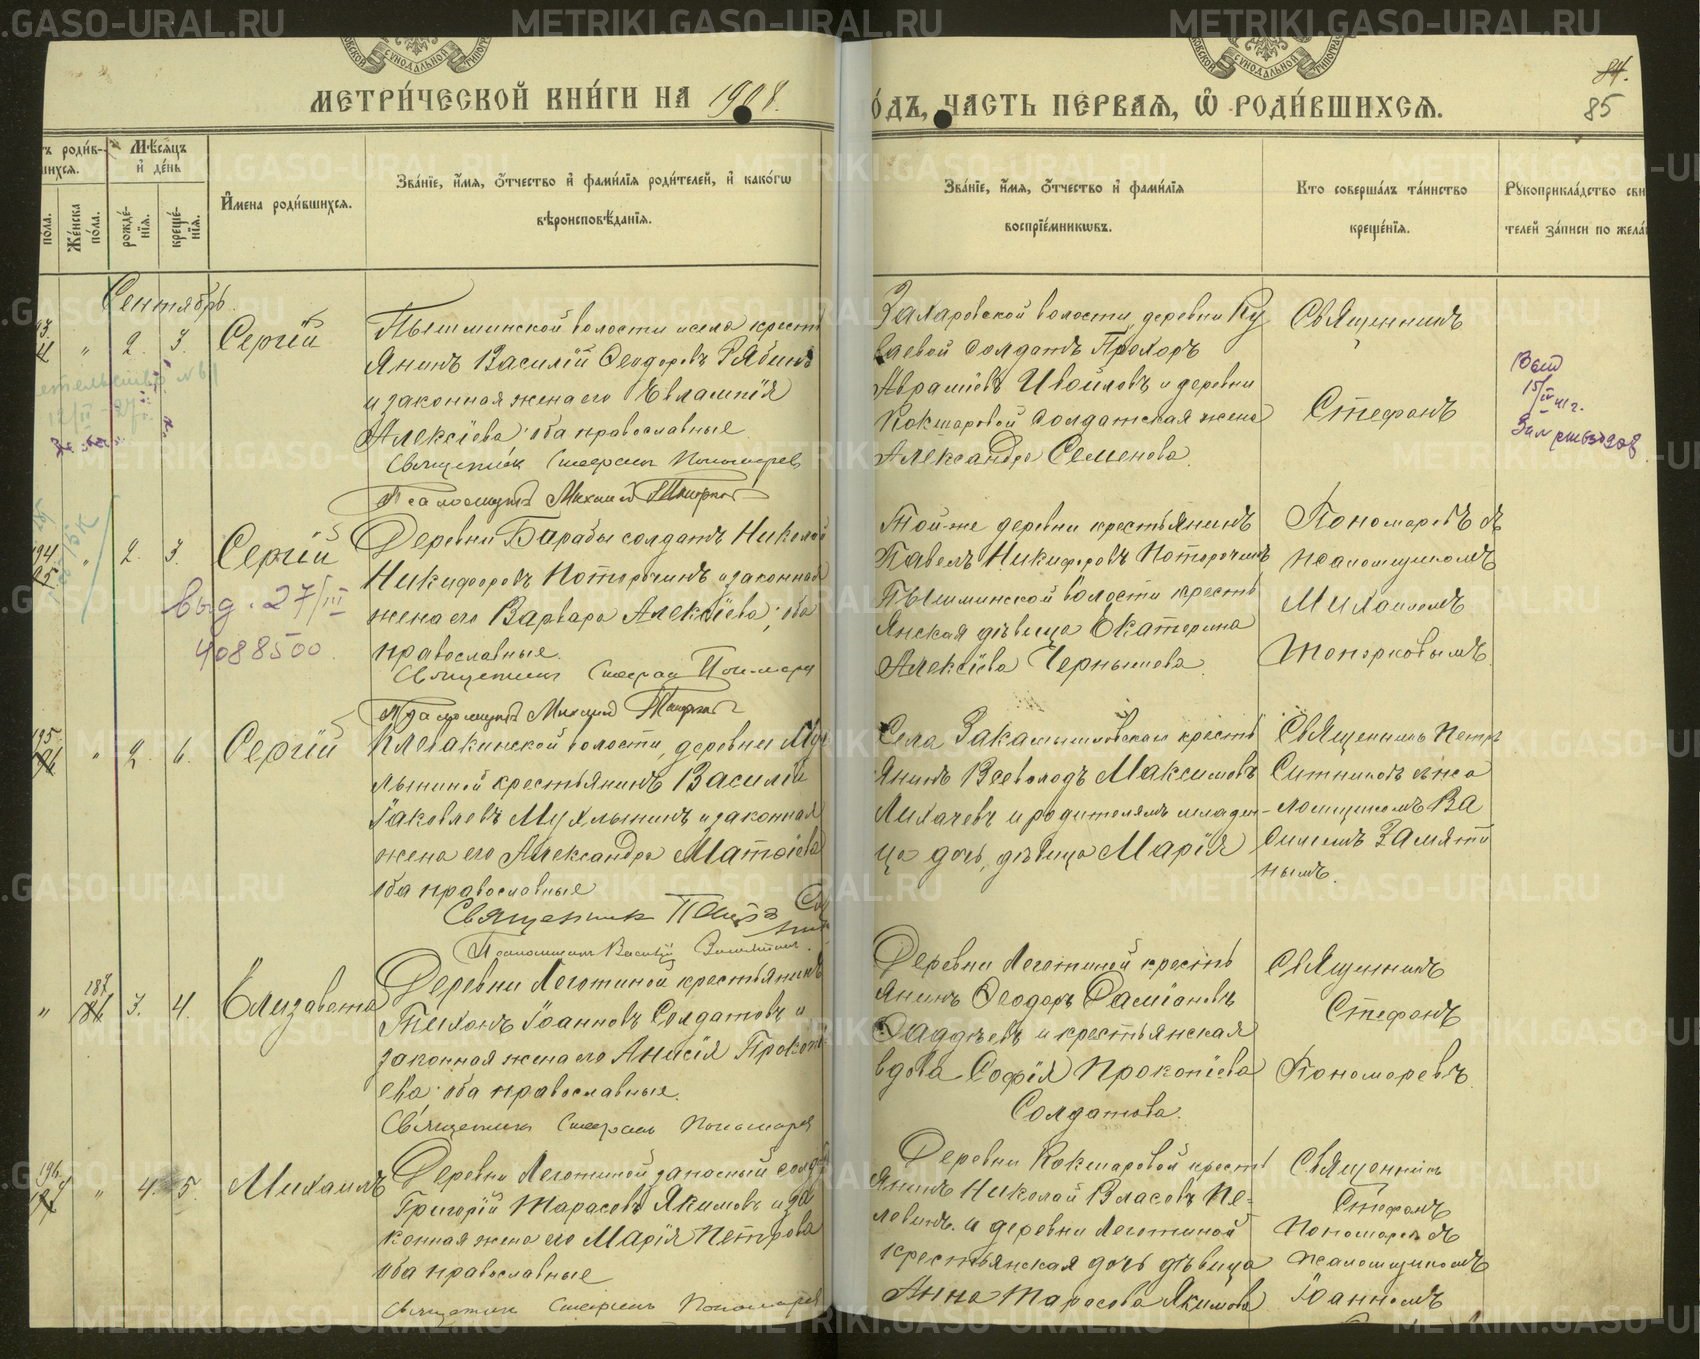 МЕТРИ́ЧЕСКОЙ КНИ́ГИ НА 1908.
ОДЪ, ЧАСТЬ ПЕРВАЯ, Ѽ РОДИ́ВШИХСЯ.
84.
85
Мѣ́сяцъ и҆ де́нь
рожде́нїя.
креще́нїя.
Же́нска по́ла.
пола.
И҆мена роди́вшихся.
Зва́нїе, и҆́мя, ѻ҆́тчество и҆ фами́лїя роди́телей, и҆ како́гѡ
вѣроисповѣ́данїя.
Зва́нїе, и҆́мя, ѻ҆́тчество и҆ фами́лїя
воспрїе́мникѡвъ.
Кто соверша́лъ та́инство
креще́нїя.
Рукоприкла́дство сви
телей за́писи по жела́
Сентябрь.
" 2. 3. Сергій
Пышминской волости и села кресть
янинъ Василій Ѳеодоровъ Рябинъ
и законная жена его Евлампія
Алексіева, оба православные
Священник Стефан Пономарев
Псаломщикъ Михаил Топорков
Захаровской волости, деревни Ку
солдатъ Прохоръ
Аврамiевъ Ивойловъ и деревни
Кокшаровой солдатская жена
Александра Семенова.
Священникъ
Стефанъ
15/III 41 г.
194
" 2. 3. Сергій
выд. 27/III
4088500
Деревни Барабы солдатъ Николай
Никифоровъ Поторочинъ и законная
жена его Варвара Алексіева, оба
православные.
Священник Стефан Пономарев
Псаломщикъ Михаил Топорков
Той-же деревни крестьянинъ
Павелъ Никифоровъ Поторочинъ
Пышминской волости кресть
янская дѣвица Екатерина
Алексіева Чернышова
Пономаревъ съ
псаломщикомъ
Михаиломъ
Топорковымъ.
195.
" 2. 6. Сергій
волости, деревни Мух
лыниной крестьянинъ Василій
Іаковлевъ Мухлынинъ и законная
жена его Александра Матѳіева
оба православные
Священник Петръ
Псаломщик Василій Замятин.
Села Закамышловскаго кресть
янинъ Всеволодъ Максимовъ
Лихачевъ и родителямъ младен-
ца дочь, дѣвица Марія
Священникъ Петръ
Ситниковъ съ пса
ломщикомъ Ва
силіемъ Замяти
нымъ.
" 187. 3. 4. Елизавета
Деревни Леготиной крестьянинъ
Тихонъ Іоанновъ Солдатовъ и
законная жена его Анисія Прокопі
ева, оба православные.
Священник Стефан Пономарев
Деревни Леготиной кресть
янинъ Ѳеодоръ Даміановъ
Ѳаддѣевъ и крестьянская
вдова Софія Прокопіева
Солдатова.
Священникъ
Стефанъ
Пономаревъ.
196.
" 4. 5. Михаилъ
Деревни Леготиной запасный солд
Григорій Тарасовъ Якимовъ и за
конная жена его Марія Петрова
оба православные
Священник Стефан Пономарев
Деревни Кокшаровой кресть
янинъ Николай Власовъ Пе-
левинъ. и деревни Леготиной
крестьянская дочь дѣвица
Анна Тарасова Якимова
Священникъ
Стефанъ
Пономаревъ съ
псаломщикомъ
Іоанномъ
METRIKI.GASO-URAL.RU